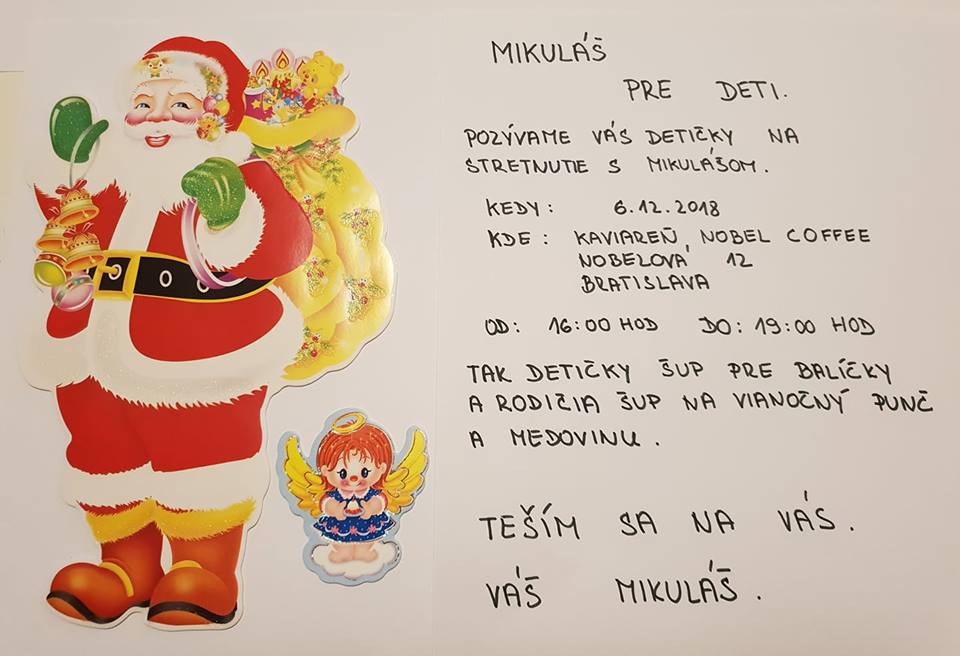 MIKULÁŠ
PRE DETI.
POZÝVAME VÁS DETIČKY NA
STRETNUTIE S MIKULÁŠOM.
KEDY: 6.12.2018
KDE: KAVIAREŇ NOBEL COFFEE
NOBELOVA 12
BRATISLAVA
OD: 16:00 HOD DO: 19:00 HOD
TAK DETIČKY ŠUP PRE BALÍČKY
A RODIČIA ŠUP NA VIANOČNÝ PUNČ
A MEDOVINU.
TEŠÍM SA NA VÁS.
VÁŠ MIKULÁŠ.